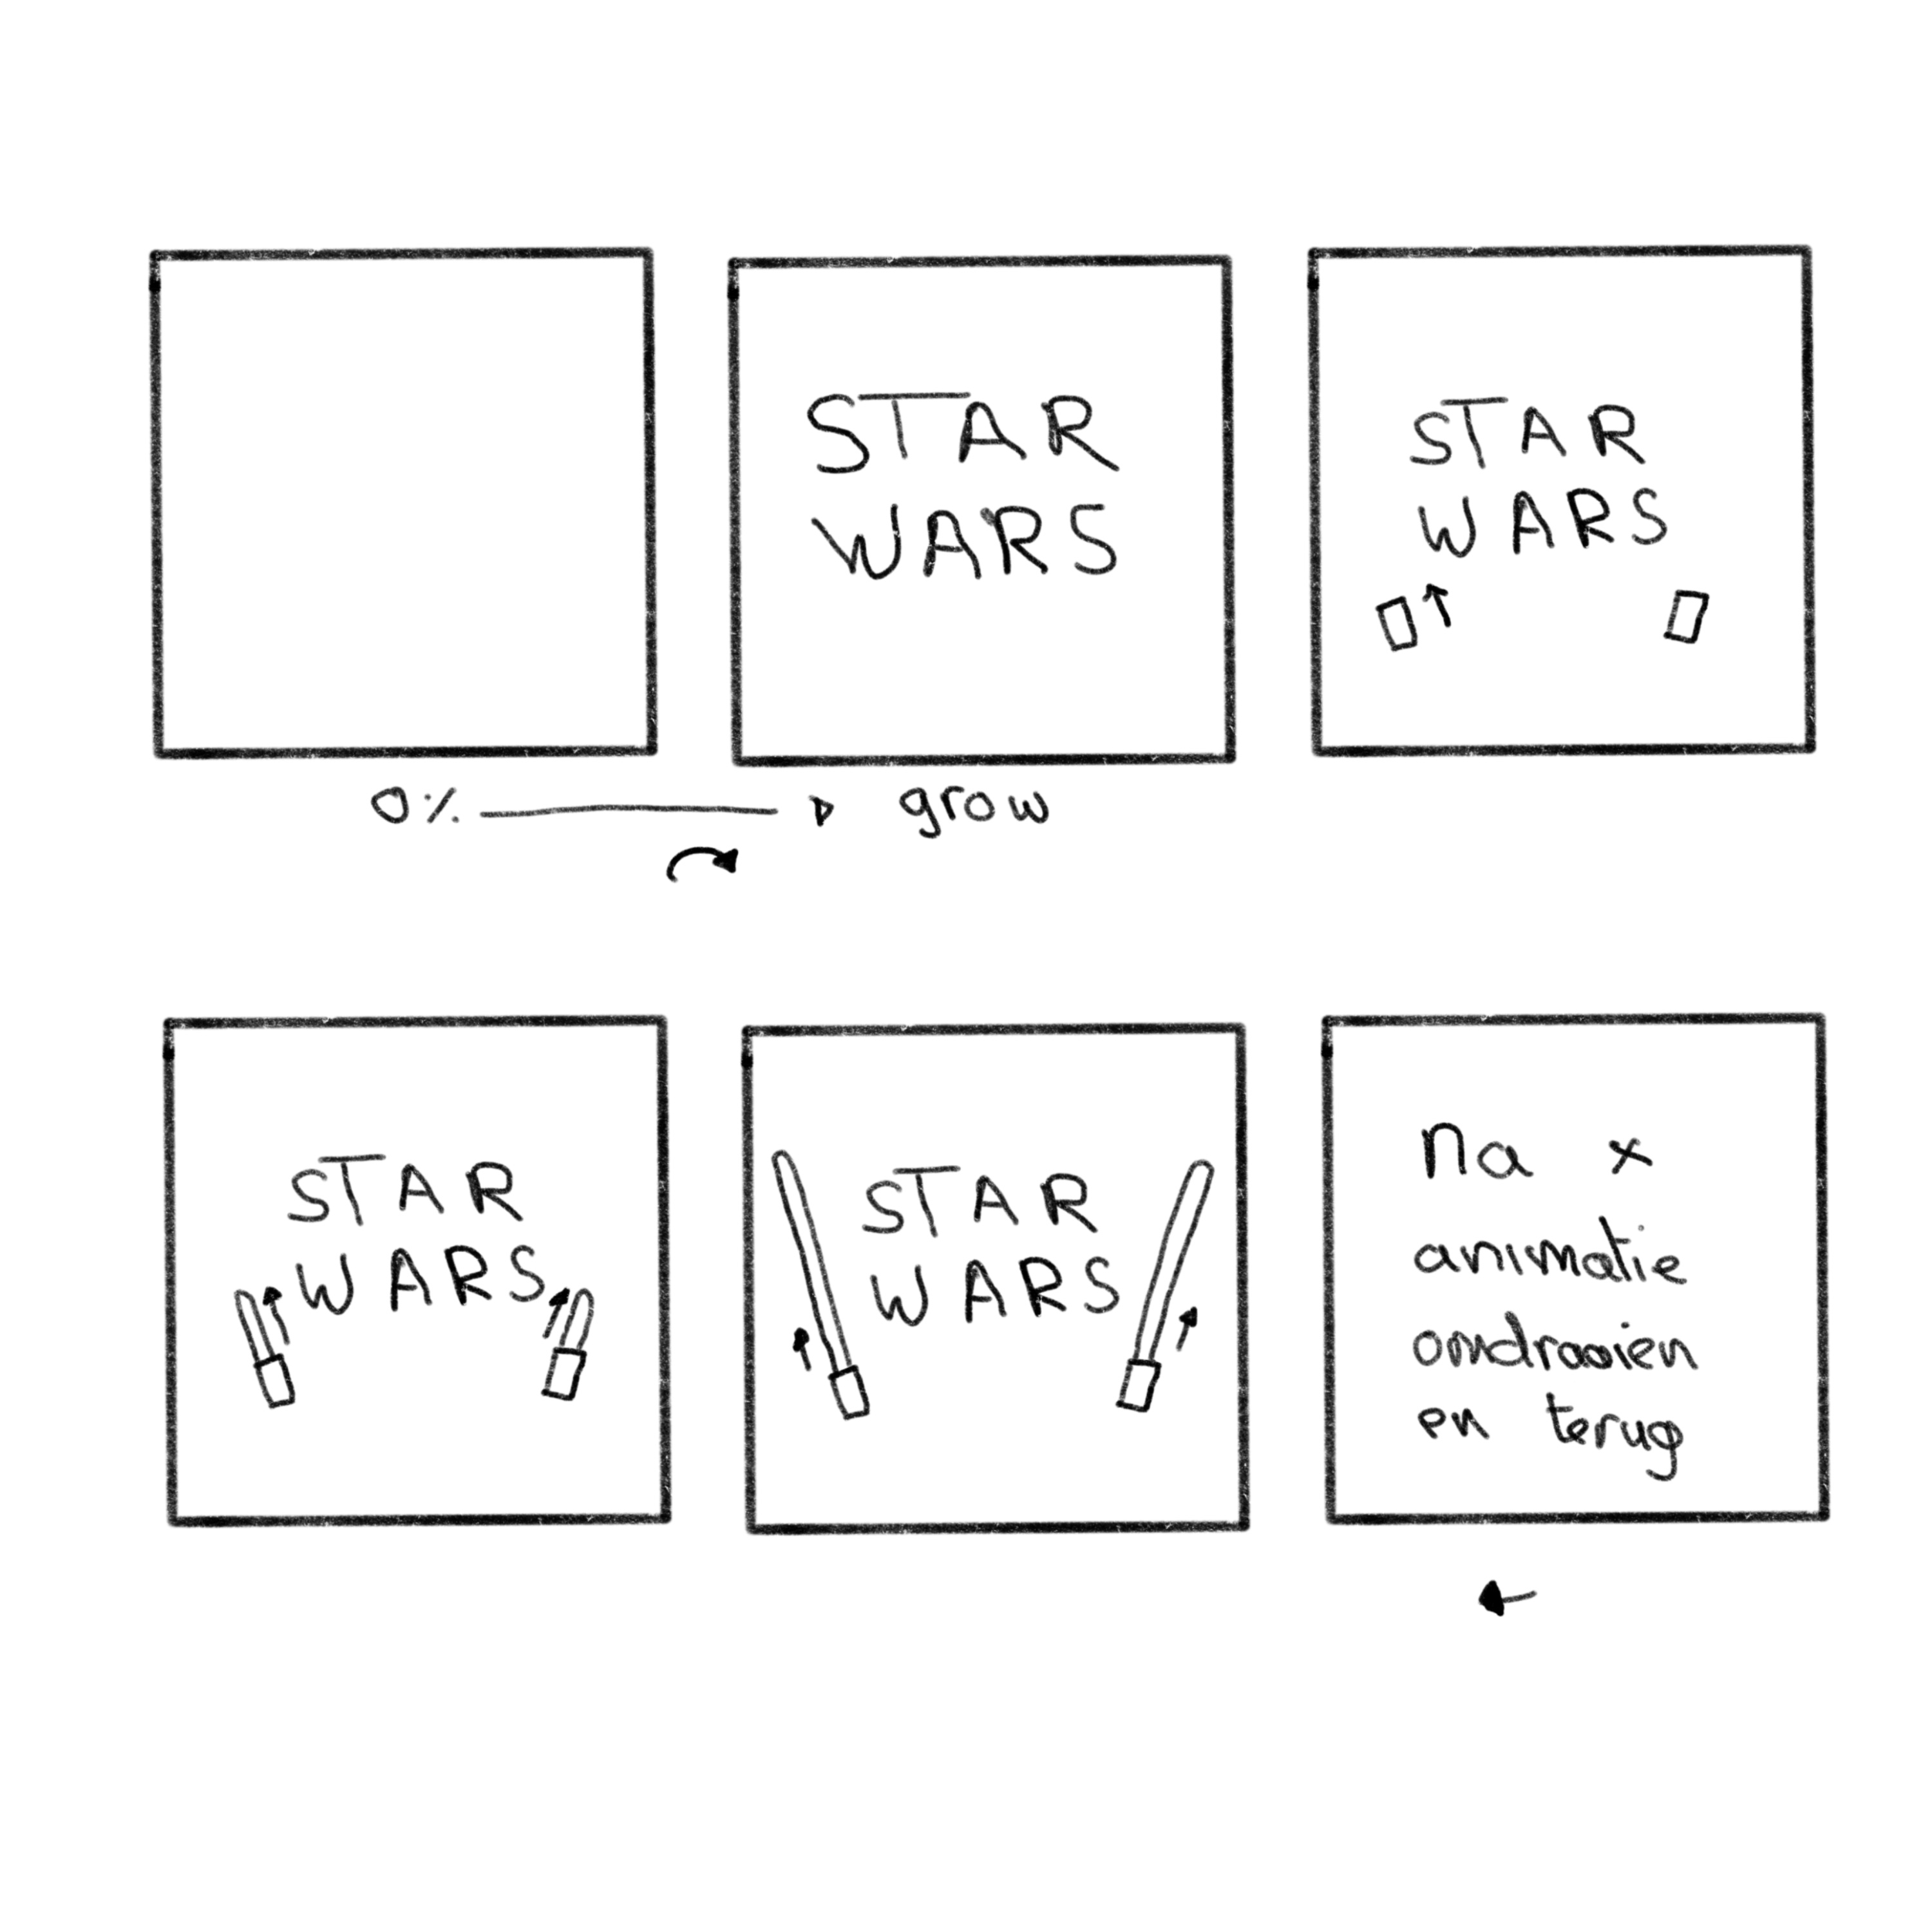 STAR
WARS
STAR
WARS
0% grow
STAR
WARS
STAR
WARS
na x
animatie
omdraaien
en terug